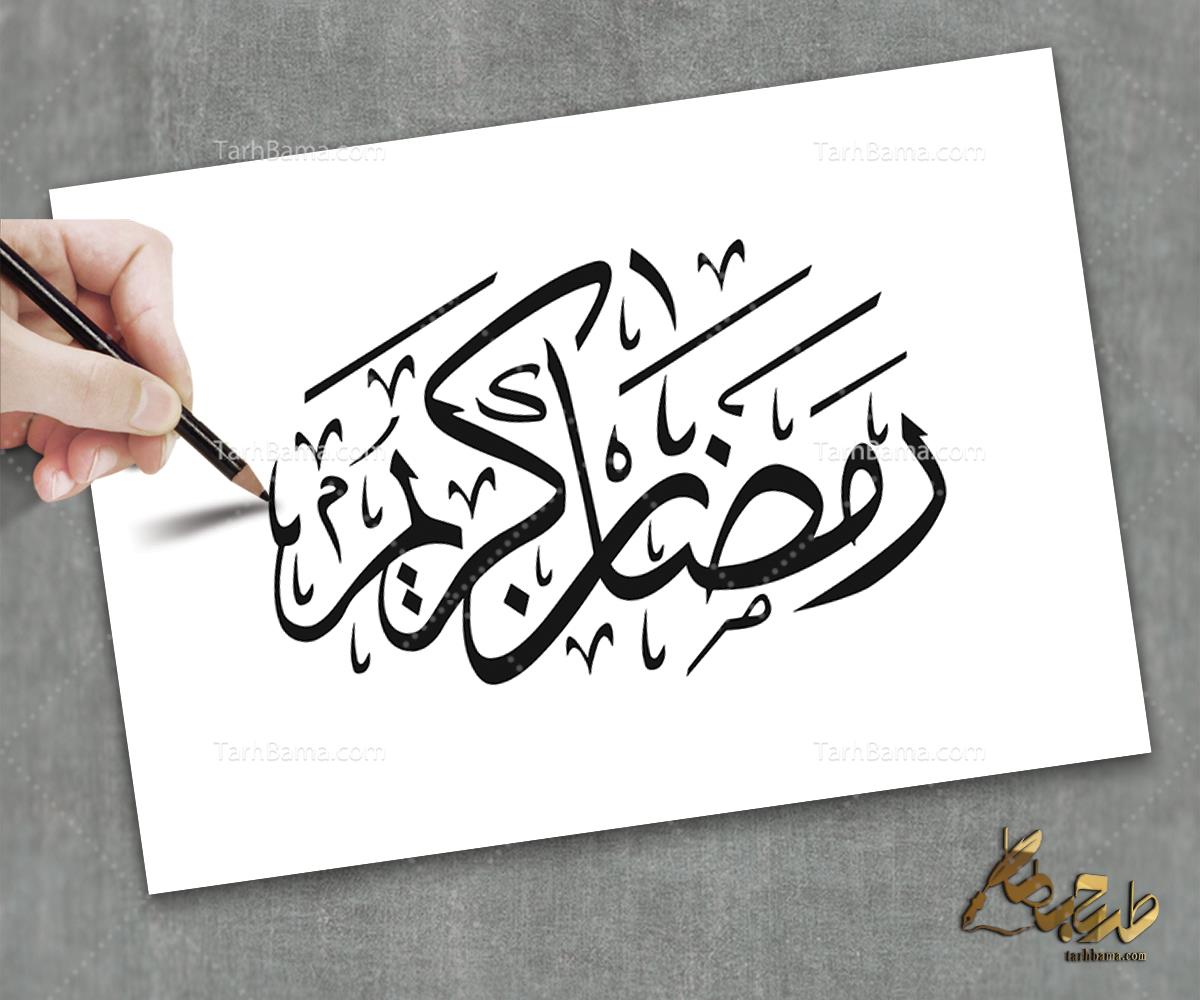 TarhBama.com TarhBama.com
رمضان كريم
TarhBama.com TarhBama.com
TarhBama.com TarhBama.com
طرح باما
tarhbama.com